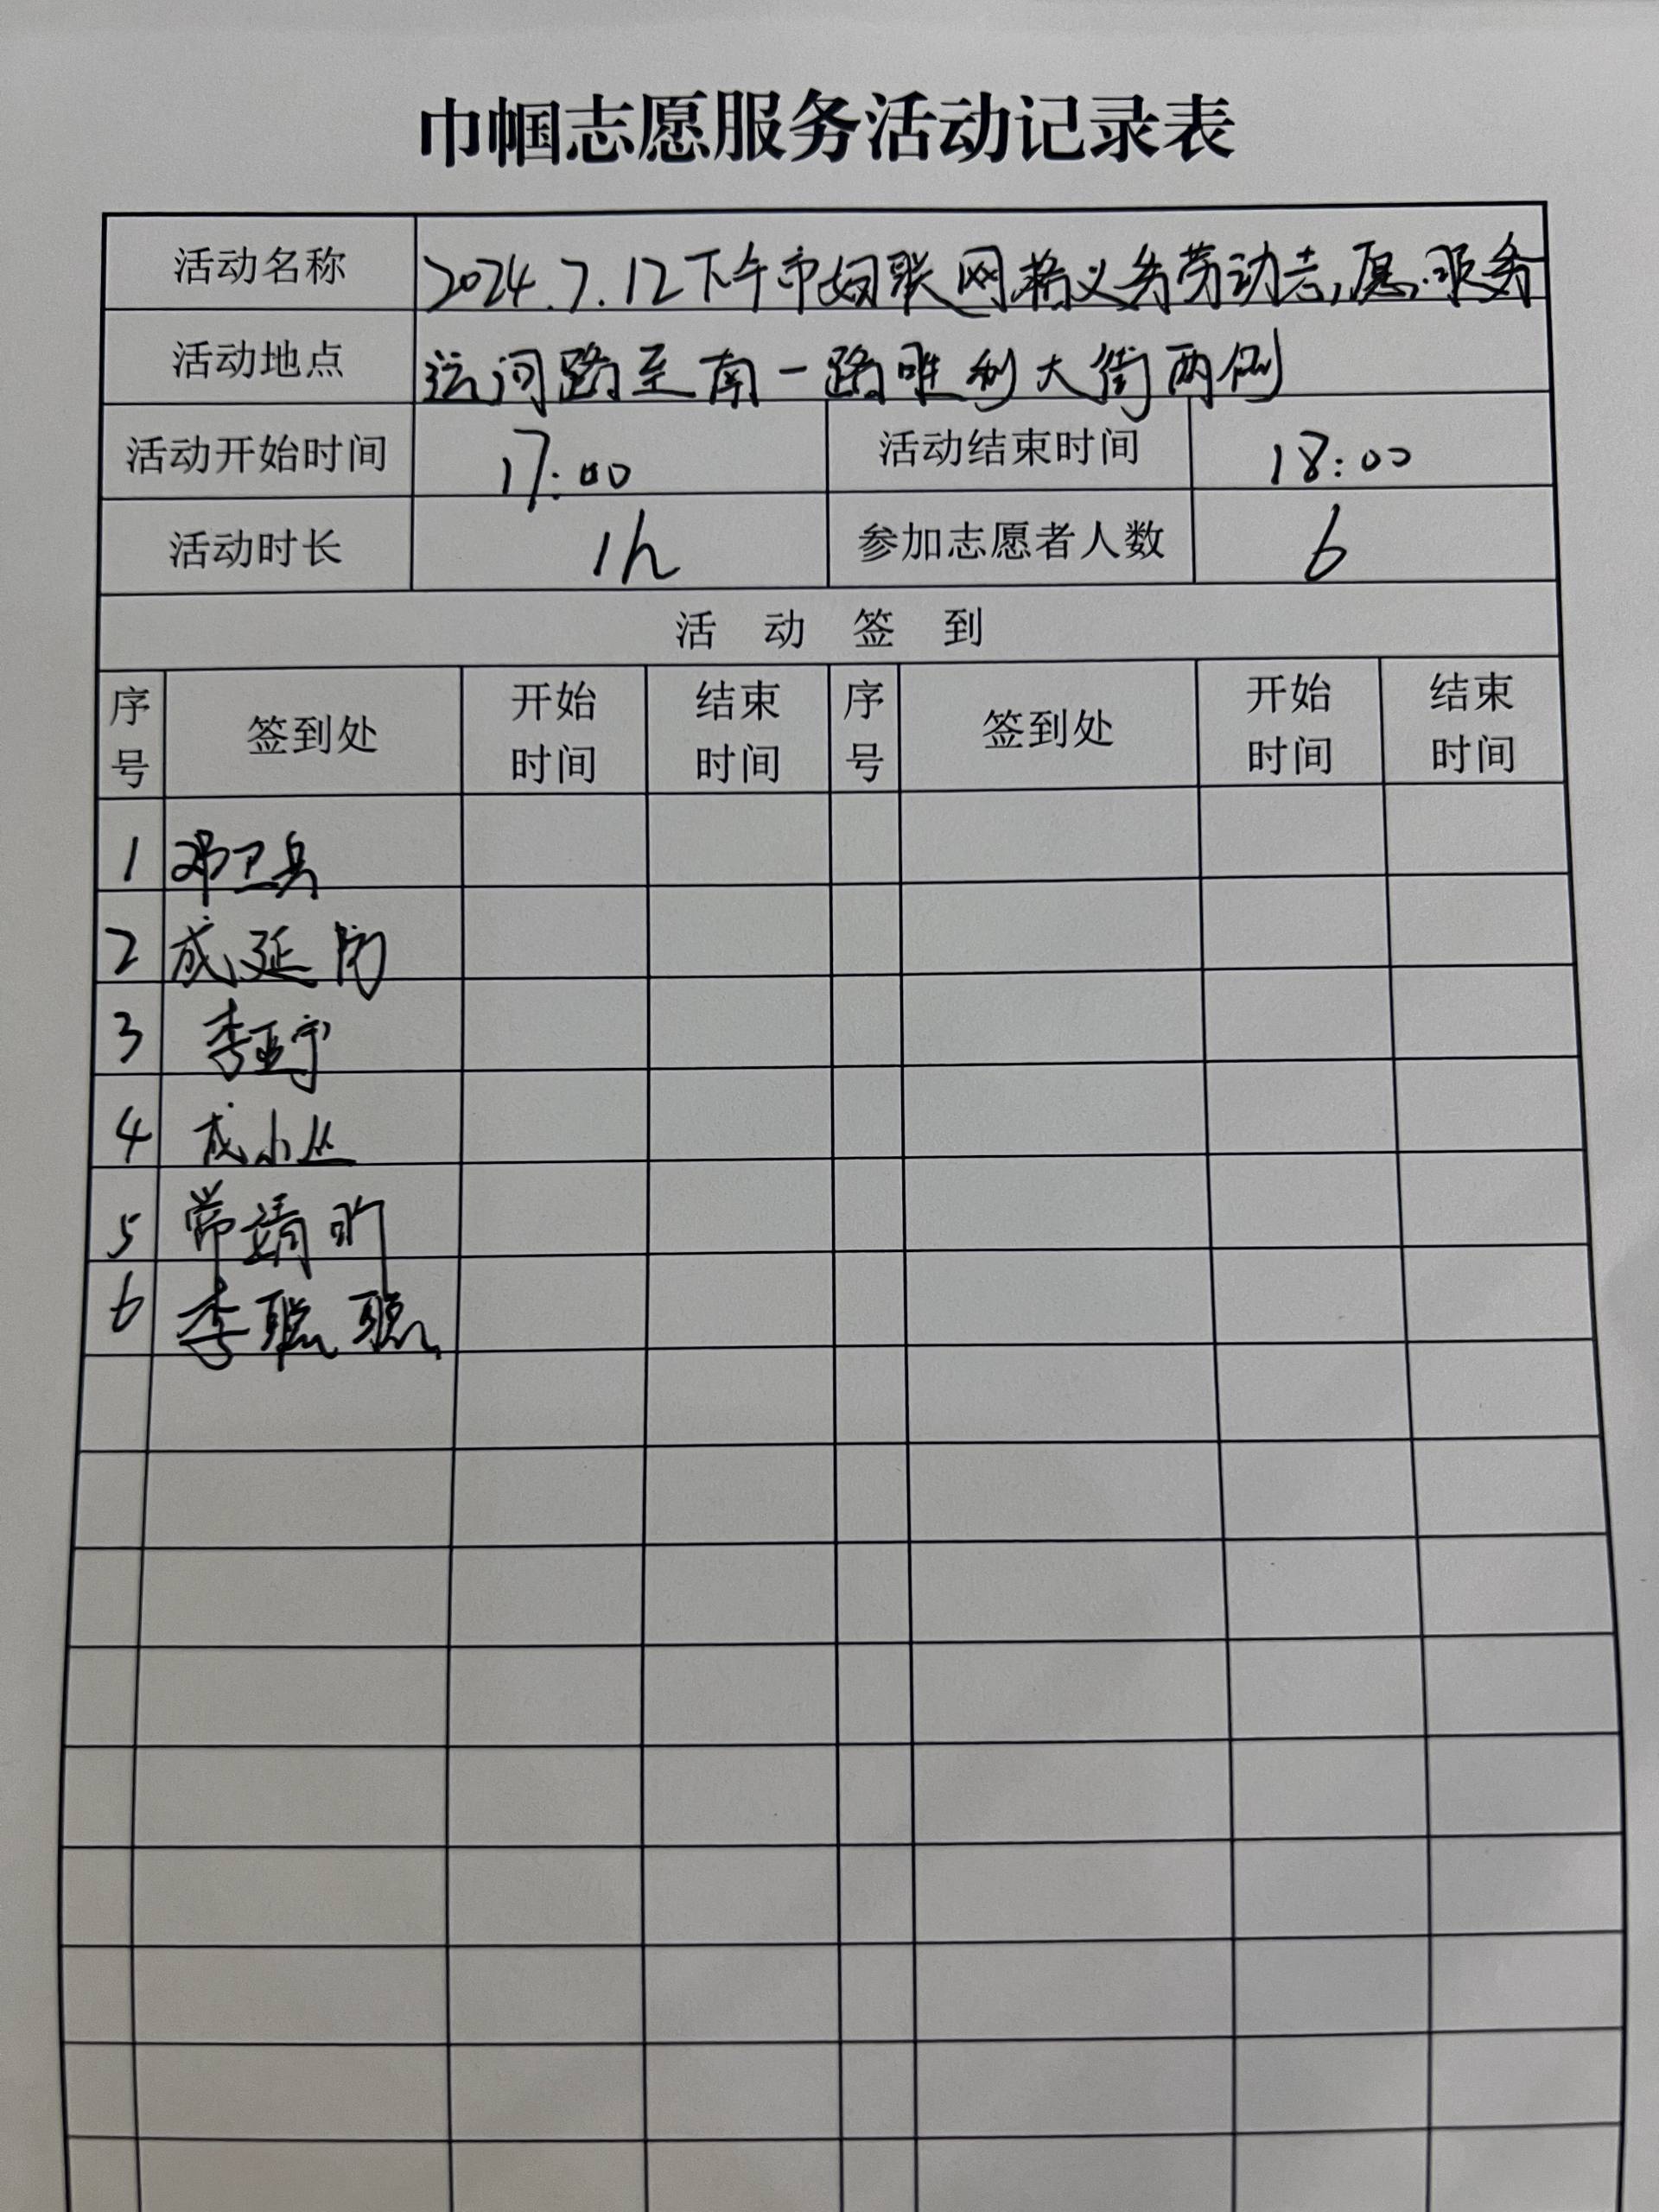 巾帼志愿服务活动记录表
活动名称 2024.7.12下午市妇联网格义务劳动志愿服务
活动地点 运河路至南一路胜利大街两侧
活动开始时间 17:00 活动结束时间 18:00
活动时长 1h 参加志愿者人数 6
活动签到
序号 签到处 开始时间 结束时间 序号 签到处 开始时间 结束时间
1 邓卫兵
2 成延
3 李亚宇
4 成小丛
5 常靖昕
6 李聪聪